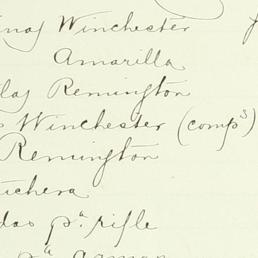 Winchester
Amarilla
Remington
Winchester (comp³)
Remington
uchera
das pª rifle
pª